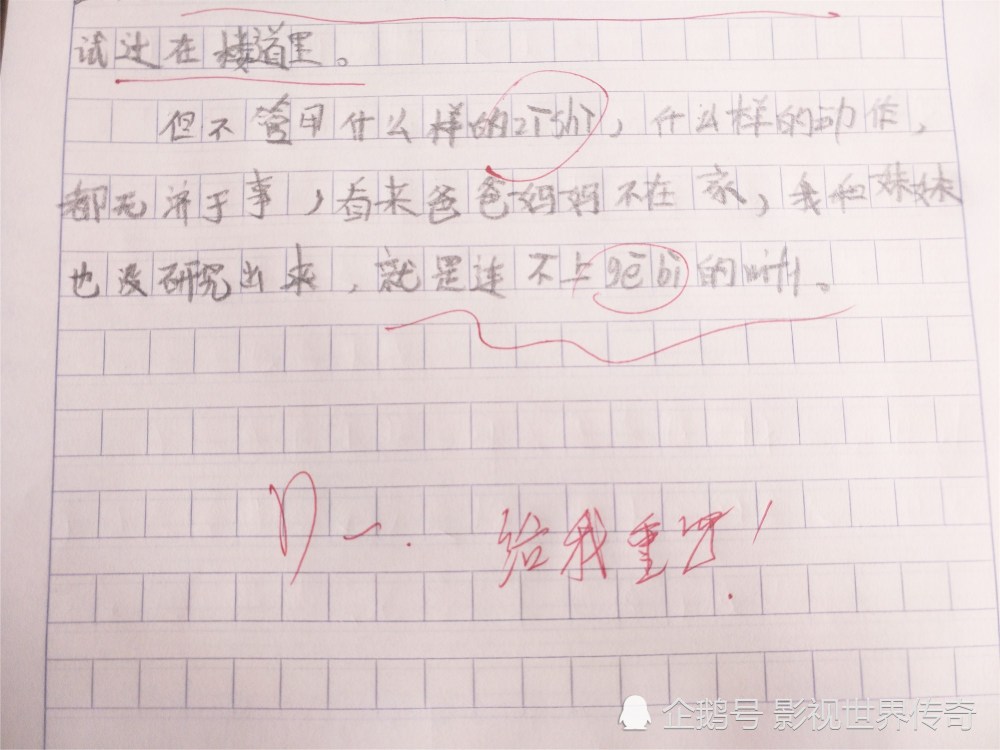 试过在楼道里。
但不管用什么样的zī shì，什么样的动作，
都无济于事，看来爸爸妈妈不在家，我和妹妹
也没研究出来，就是连不上gē bì的wifi。
D一.
给我重写！
企鹅号 影视世界传奇